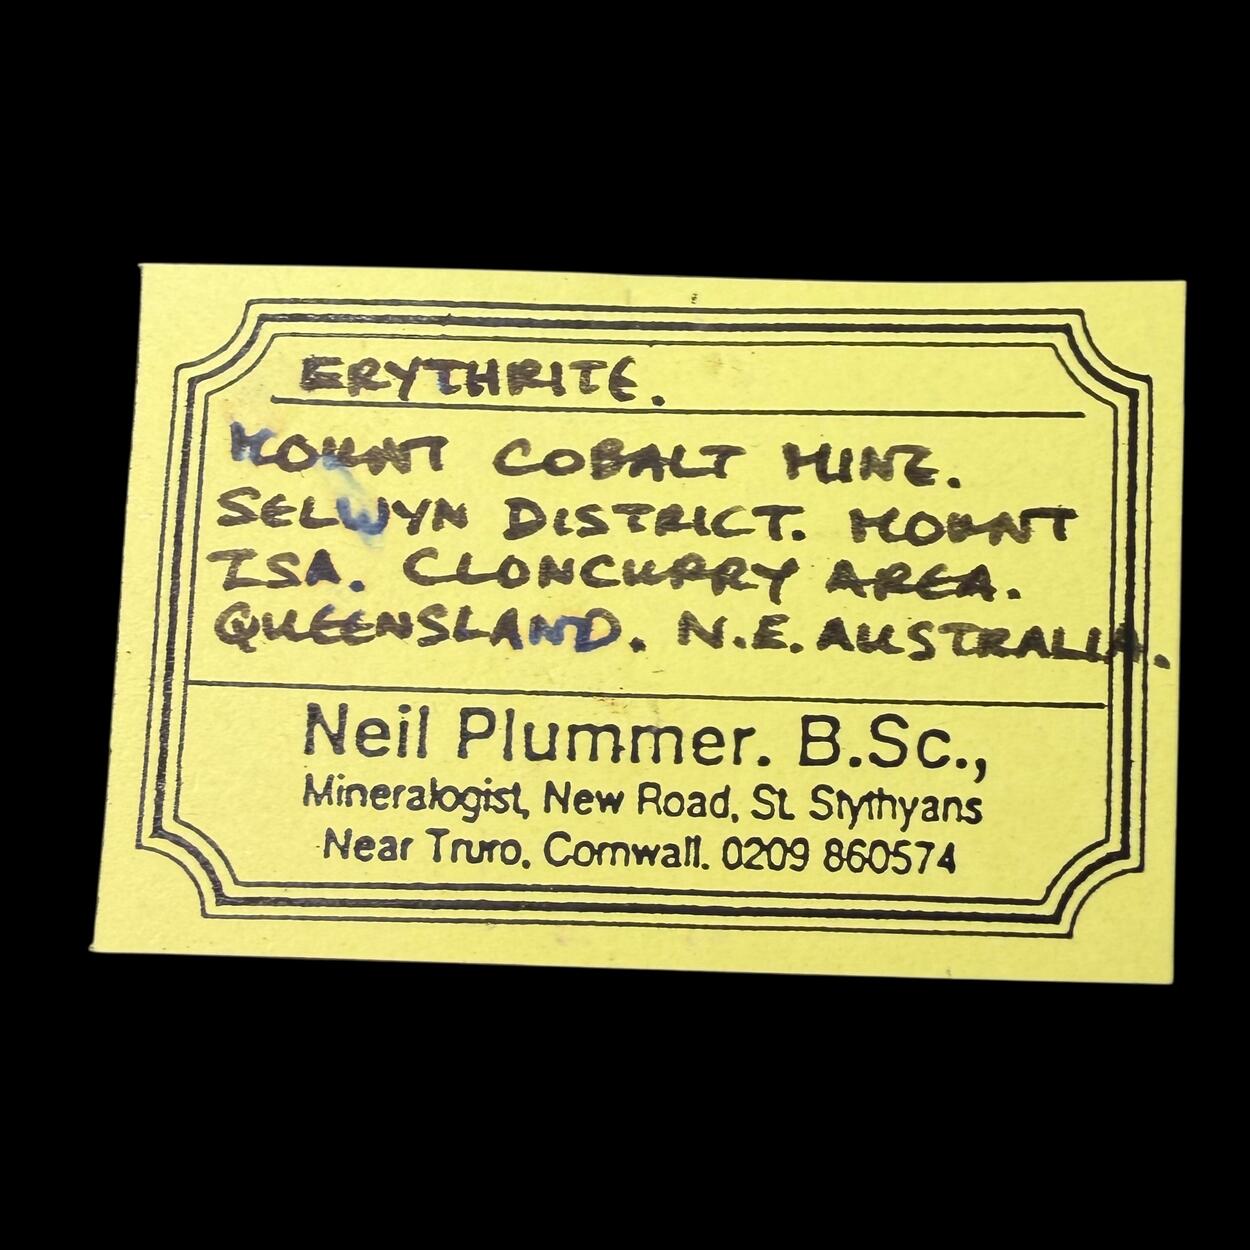 ERYTHRITE.
MOUNT COBALT MINE.
SELWYN DISTRICT. MOUNT
ISA. CLONCURRY AREA.
QUEENSLAND. N.E. AUSTRALIA.
Neil Plummer. B.Sc.,
Mineralogist, New Road, St. Stythyans
Near Truro, Cornwall. 0209 860574